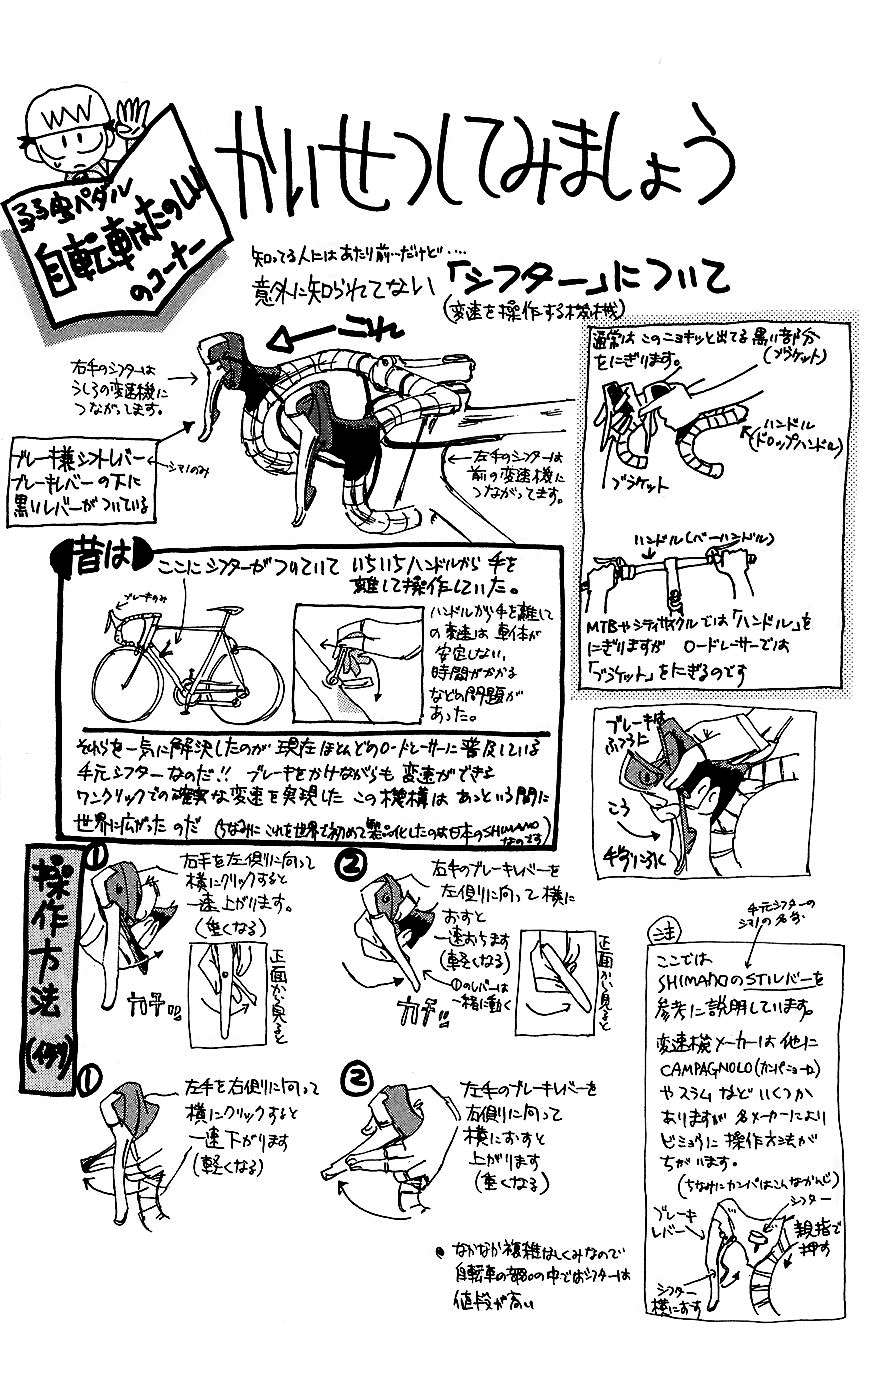 かいせつしてみましょう
弱虫ペダル
自転車はたのしい
のコーナー
知ってる人にはあたり前…だけど‥‥
意外に知られてない「シフター」について
(変速を操作する機械)
これ
右手のシフターは
うしろの変速機に
つながってます。
ブレーキ兼シフトレバー
ブレーキレバーの下に
黒いレバーがついている
シマノのみ
左手のシフターは
前の変速機に
つながってます。
通常はこのニョキッと出てる黒い部分
(ブラケット)
をにぎります。
ハンドル
(ドロップハンドル)
ブラケット
ハンドル(バーハンドル)
MTBやシティサイクルでは「ハンドル」を
にぎりますが ロードレーサーでは
「ブラケット」をにぎるのです
昔は
ここにシフターがついていて いちいちハンドルから手を
離して操作していた。
ブレーキのみ
ハンドルから手を離して
の変速は車体が
安定しない、
時間がかかる
などの問題が
あった。
それらを一気に解決したのが 現在ほとんどのロードレーサーに普及している
手元シフターなのだ!! ブレーキをかけながらも変速ができる
ワンクリックでの確実な変速を実現したこの機構は あっという間に
世界に広がったのだ (ちなみにこれを世界で初めて製品化したのは日本のSHIMANO
なのです)
ブレーキは
ふつうに
こう
手前にひく
操作方法
(例)
①
右手を左側に向って
横にクリックすると
一速上がります。
(重くなる)
カチッ!!
正面から見ると
②
右手のブレーキレバーを
左側に向って横に
おすと
一速おちます
(軽くなる)
①のレバーは
一緒に動く
カチッ!!
正面から見ると
①
左手を右側に向って
横にクリックすると
一速下がります
(軽くなる)
②
左手のブレーキレバーを
右側に向って
横におすと
上がります
(重くなる)
●なかなか複雑なしくみなので
自転車の部品の中ではシフターは
値段が高い
手元シフターの
シマノの名称
注
ここでは
SHIMANOのSTIレバーを
参考に説明しています。
変速機メーカーは他に
CAMPAGNOLO(カンパニョーロ)
やスラムなどいくつか
ありますが各メーカーにより
ビミョウに操作方法が
ちがいます。
(ちなみにカンパはこんなかんじ)
ブレーキ
レバー
シフター
親指で
押す
シフター
横におす